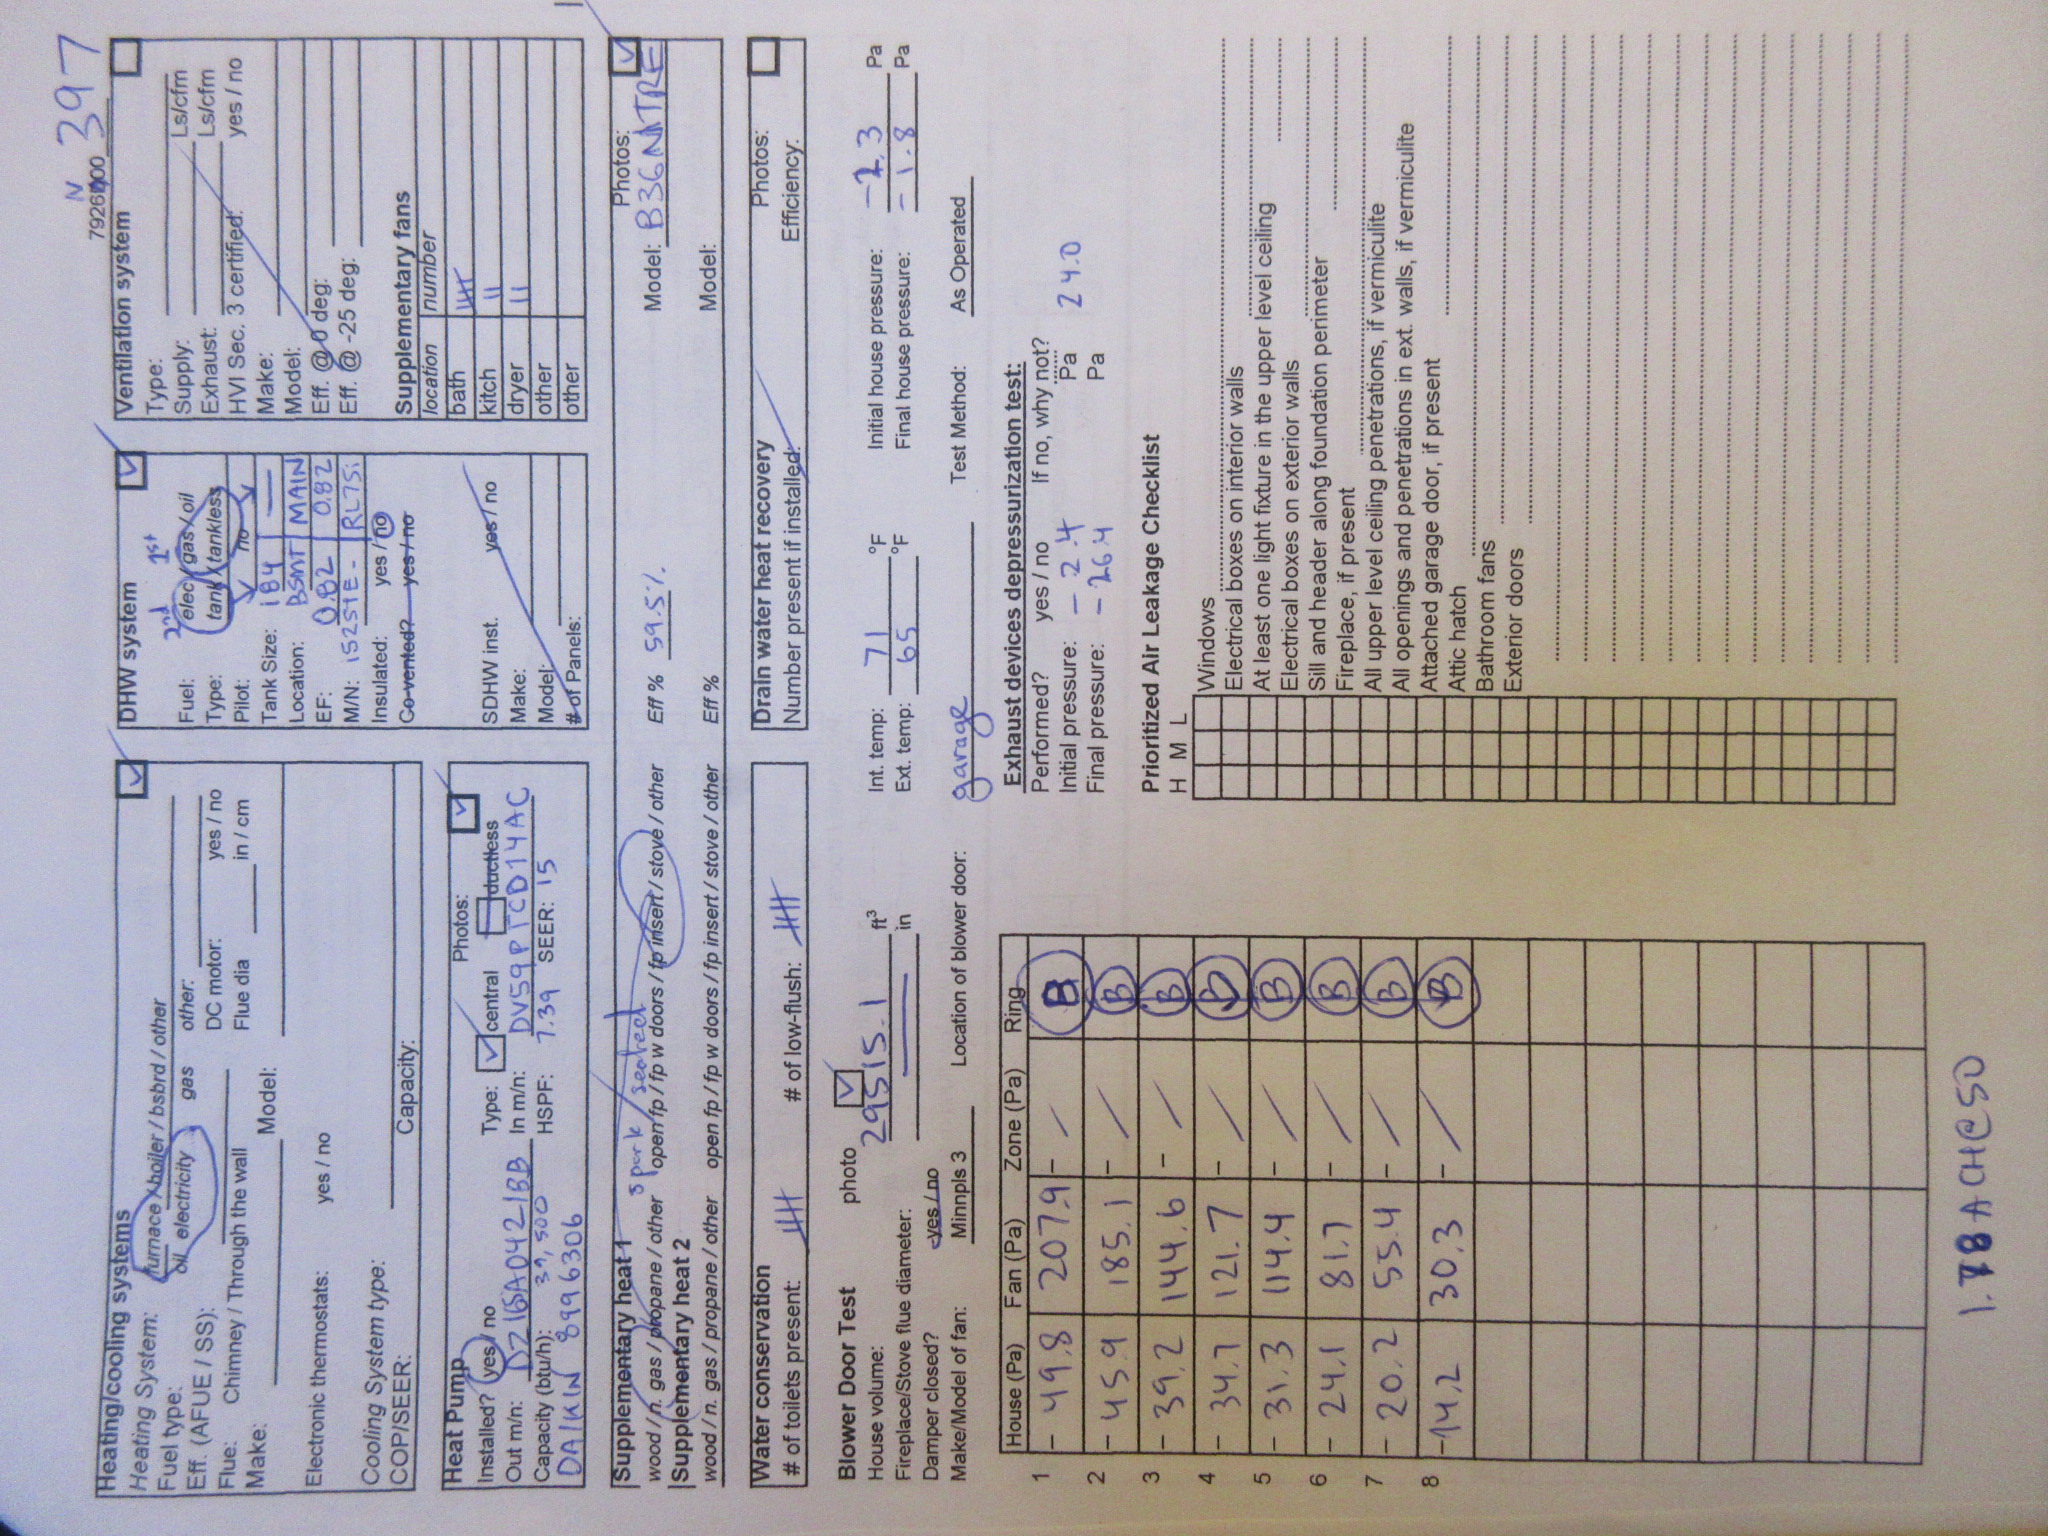 7926N00 397
Heating/cooling systems
Heating System: furnace / boiler / bsbrd / other
Fuel type: oil electricity gas other:
Eff. (AFUE / SS): DC motor: yes / no
Flue: Chimney / Through the wall Flue dia in / cm
Make: Model:
Electronic thermostats: yes / no
Cooling System type:
COP/SEER: Capacity:
DHW system
2nd 1st
Fuel: elec / gas / oil
Type: tank / tankless
Pilot: no
Tank Size: 184 —
Location: BSMT MAIN
EF: 0.82 0.82
M/N: 152STE - RL75i
Insulated: yes / no
Co-vented? yes / no
SDHW inst. yes / no
Make:
Model:
# of Panels:
Ventilation system
Type:
Supply: Ls/cfm
Exhaust: Ls/cfm
HVI Sec. 3 certified: yes / no
Make:
Model:
Eff. @ 0 deg:
Eff. @ -25 deg:
Supplementary fans
location number
bath
kitch ||
dryer ||
other
other
Heat Pump Photos:
Installed? yes / no Type: central ductless
Out m/n: DZ16SA0421BB In m/n: DV59PTCD14AC
Capacity (btu/h): 39,500 HSPF: 7.39 SEER: 15
DAIKIN 8996306
Supplementary heat 1 spark / sealed Photos:
wood / n. gas / propane / other open fp / fp w doors / fp insert / stove / other Eff % 59.5% Model: B36NATRE
Supplementary heat 2
wood / n. gas / propane / other open fp / fp w doors / fp insert / stove / other Eff % Model:
Water conservation
# of toilets present: # of low-flush:
Drain water heat recovery Photos:
Number present if installed: Efficiency:
Blower Door Test photo
House volume: 29515.1 ft³
Fireplace/Stove flue diameter: in
Damper closed? yes / no
Make/Model of fan: Minnpls 3 Location of blower door: garage Test Method: As Operated
Int. temp: 71 °F Initial house pressure: -2.3 Pa
Ext. temp: 65 °F Final house pressure: -1.8 Pa
House (Pa) Fan (Pa) Zone (Pa) Ring
1 - 49.8 207.9 - / B
2 - 45.9 185.1 - / B
3 - 39.2 144.6 - / B
4 - 34.7 121.7 - / B
5 - 31.3 114.4 - / B
6 - 24.1 81.7 - / B
7 - 20.2 55.4 - / B
8 -14.2 30.3 - / B
1.78 ACH@50
Exhaust devices depressurization test:
Performed? yes / no If no, why not?
Initial pressure: -2.4 Pa
Final pressure: -26.4 Pa
24.0
Prioritized Air Leakage Checklist
H M L
Windows
Electrical boxes on interior walls
At least one light fixture in the upper level ceiling
Electrical boxes on exterior walls
Sill and header along foundation perimeter
Fireplace, if present
All upper level ceiling penetrations, if vermiculite
All openings and penetrations in ext. walls, if vermiculite
Attached garage door, if present
Attic hatch
Bathroom fans
Exterior doors